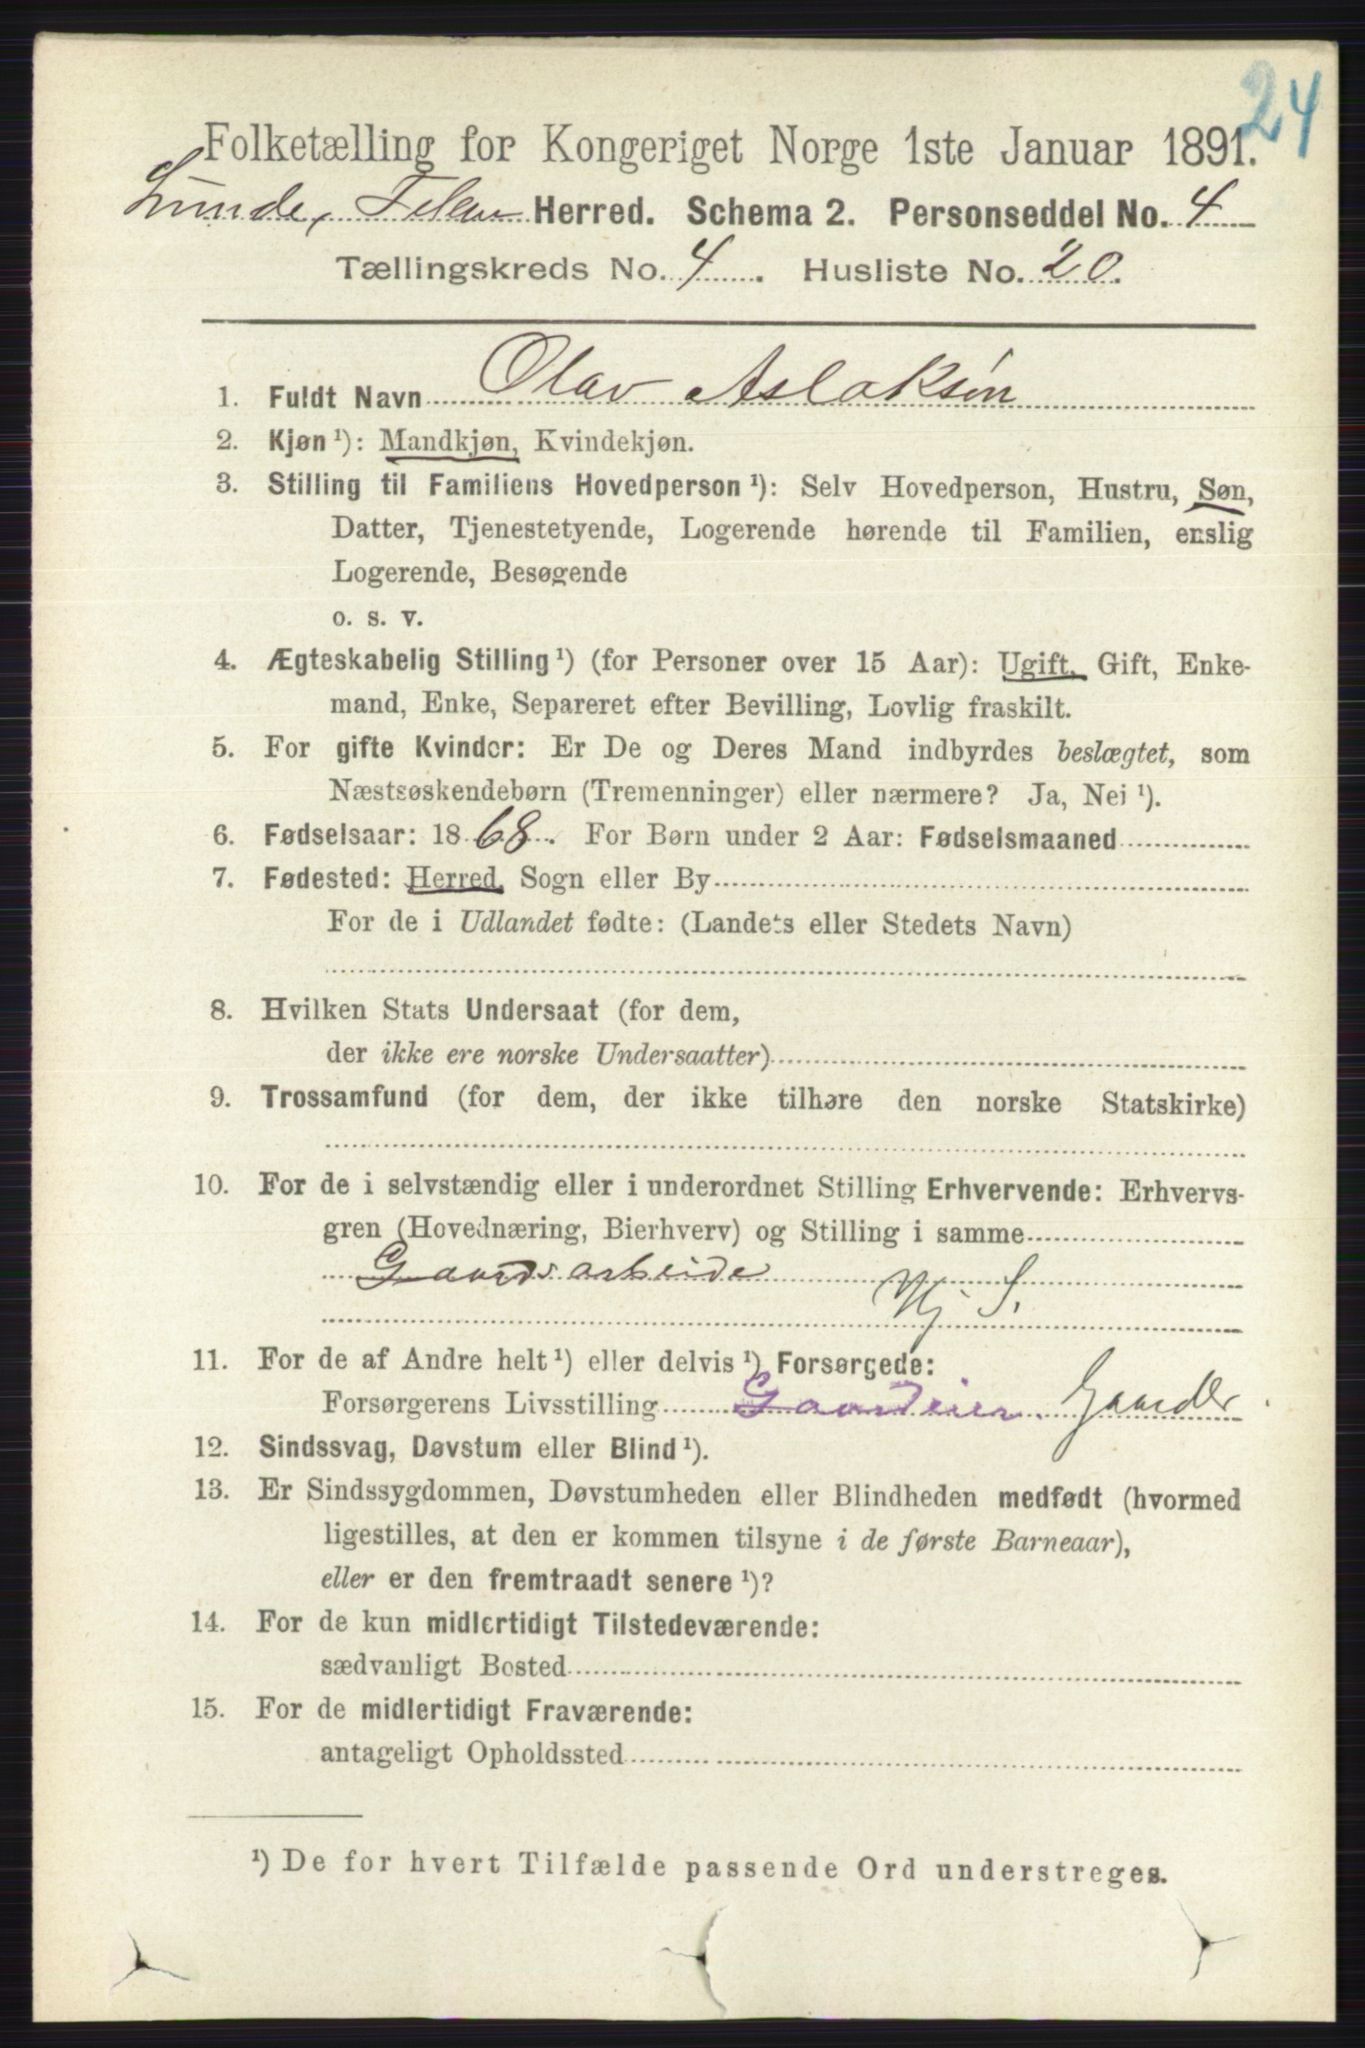 24
Folketælling for Kongeriget Norge 1ste Januar 1891.
Lunde, Telem Herred. Schema 2. Personseddel No. 4
Tællingskreds No. 4. Husliste No. 20.
1. Fuldt Navn Olav Aslaksøn
2. Kjøn ¹): Mandkjøn, Kvindekjøn.
3. Stilling til Familiens Hovedperson ¹): Selv Hovedperson, Hustru, Søn,
Datter, Tjenestetyende, Logerende hørende til Familien, enslig
Logerende, Besøgende
o. s. v.
4. Ægteskabelig Stilling ¹) (for Personer over 15 Aar): Ugift, Gift, Enke-
mand, Enke, Separeret efter Bevilling, Lovlig fraskilt.
5. For gifte Kvinder: Er De og Deres Mand indbyrdes beslægtet, som
Næstsøskendebørn (Tremenninger) eller nærmere? Ja, Nei ¹).
6. Fødselsaar: 1868. For Børn under 2 Aar: Fødselsmaaned
7. Fødested: Herred, Sogn eller By
For de i Udlandet fødte: (Landets eller Stedets Navn)
8. Hvilken Stats Undersaat (for dem,
der ikke ere norske Undersaatter)
9. Trossamfund (for dem, der ikke tilhøre den norske Statskirke)
10. For de i selvstændig eller i underordnet Stilling Erhvervende: Erhvervs-
gren (Hovednæring, Bierhverv) og Stilling i samme
Gaardsarbeide
Hj S.
11. For de af Andre helt ¹) eller delvis ¹) Forsørgede:
Forsørgerens Livsstilling Gaardeier. Gaardbr
12. Sindssvag, Døvstum eller Blind ¹).
13. Er Sindssygdommen, Døvstumheden eller Blindheden medfødt (hvormed
ligestilles, at den er kommen tilsyne i de første Barneaar),
eller er den fremtraadt senere ¹)?
14. For de kun midlertidigt Tilstedeværende:
sædvanligt Bosted
15. For de midlertidigt Fraværende:
antageligt Opholdssted
¹) De for hvert Tilfælde passende Ord understreges.